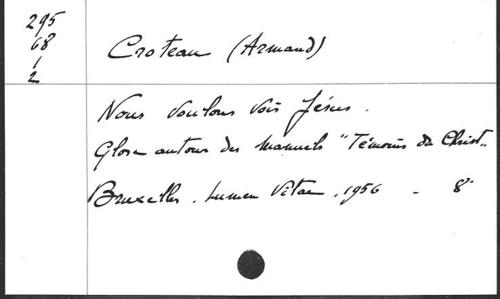 295
68
1
2
Croteau (Armand)
Nous voulons voir Jésus.
Glose autour des manuels "Témoins du Christ"
Bruxelles. Lumen Vitae. 1956 - 8°